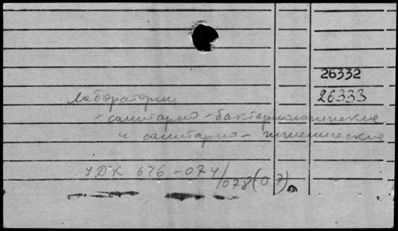 26332
26333
Лаборатории
- санитарно-бактериологические
и санитарно-гигиенические
УДК 676-074/078(07).